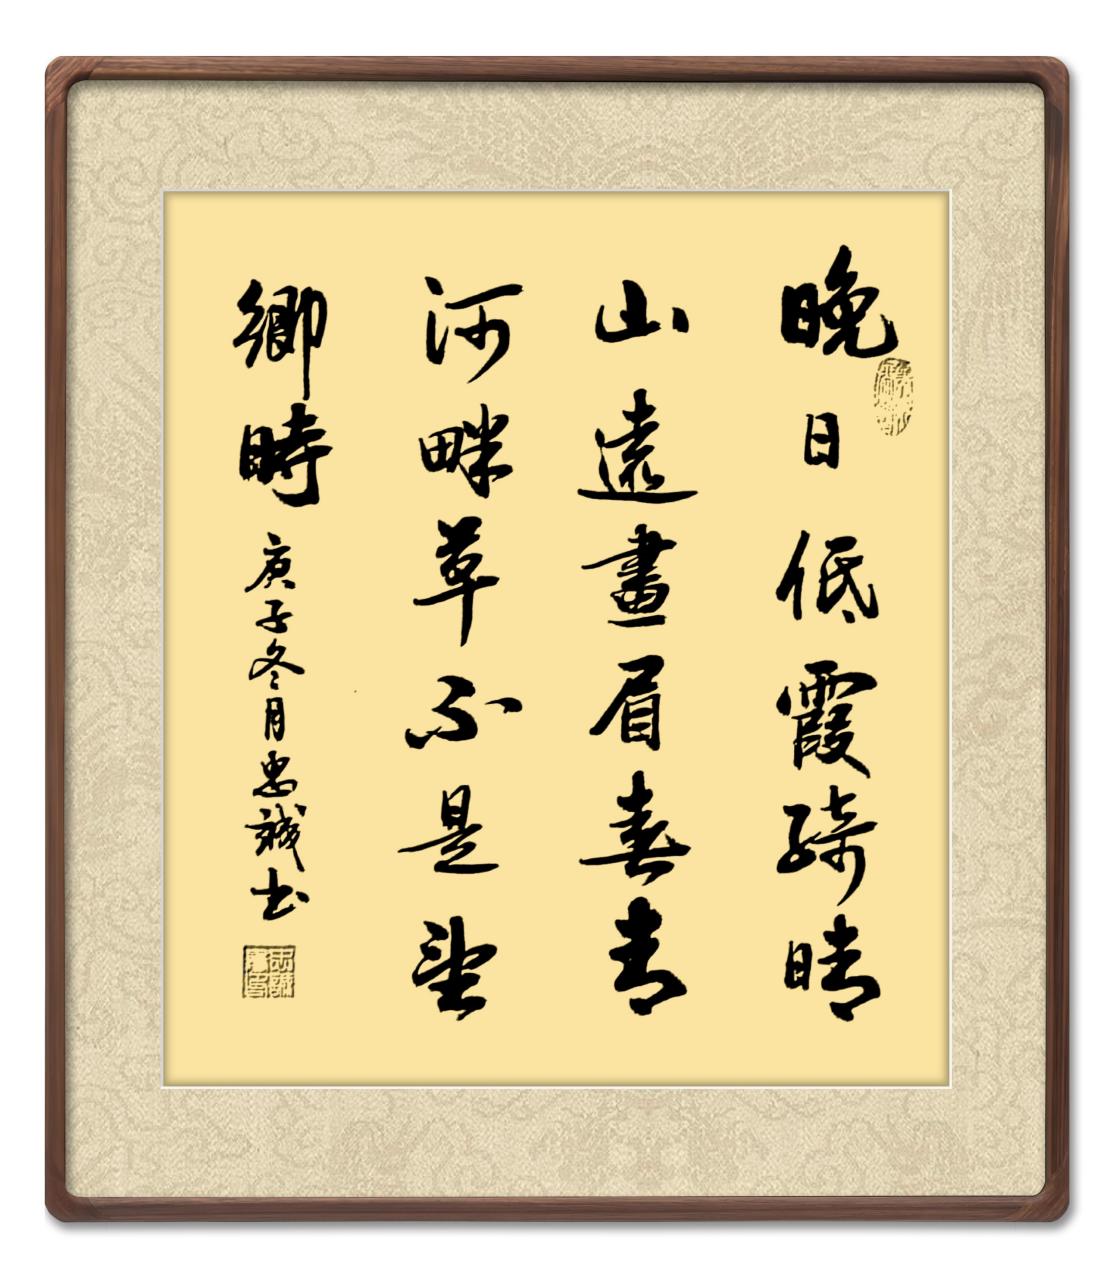 晚日低霞綺晴
山遠畫眉春青
河畔草不是望
鄉時
庚子冬月忠誠書